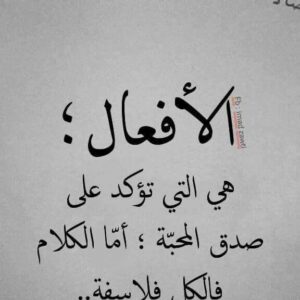 الأفعال ؛
هي التي تؤكد على
صدق المحبّة ؛ أمّا الكلام
فالكل فلاسفة..
Fb : imad zawi